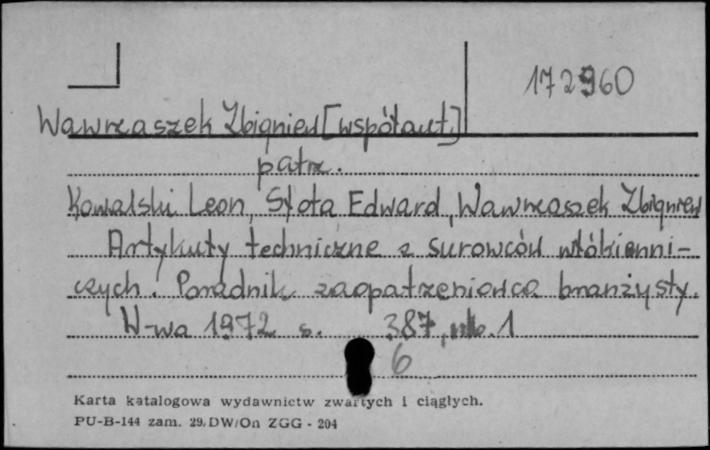 172960
Wawrzaszek Zbigniew [współaut.]
patrz.
Kowalski Leon, Słota Edward, Wawrzaszek Zbigniew
Artykuły techniczne z surowców włókienni-
czych. Poradnik zaopatrzeniowca branżysty.
W-wa 1972 s. 387, nlb. 1
6
Karta katalogowa wydawnictw zwartych i ciągłych.
PU-B-144 zam. 29/DW/On ZGG - 204